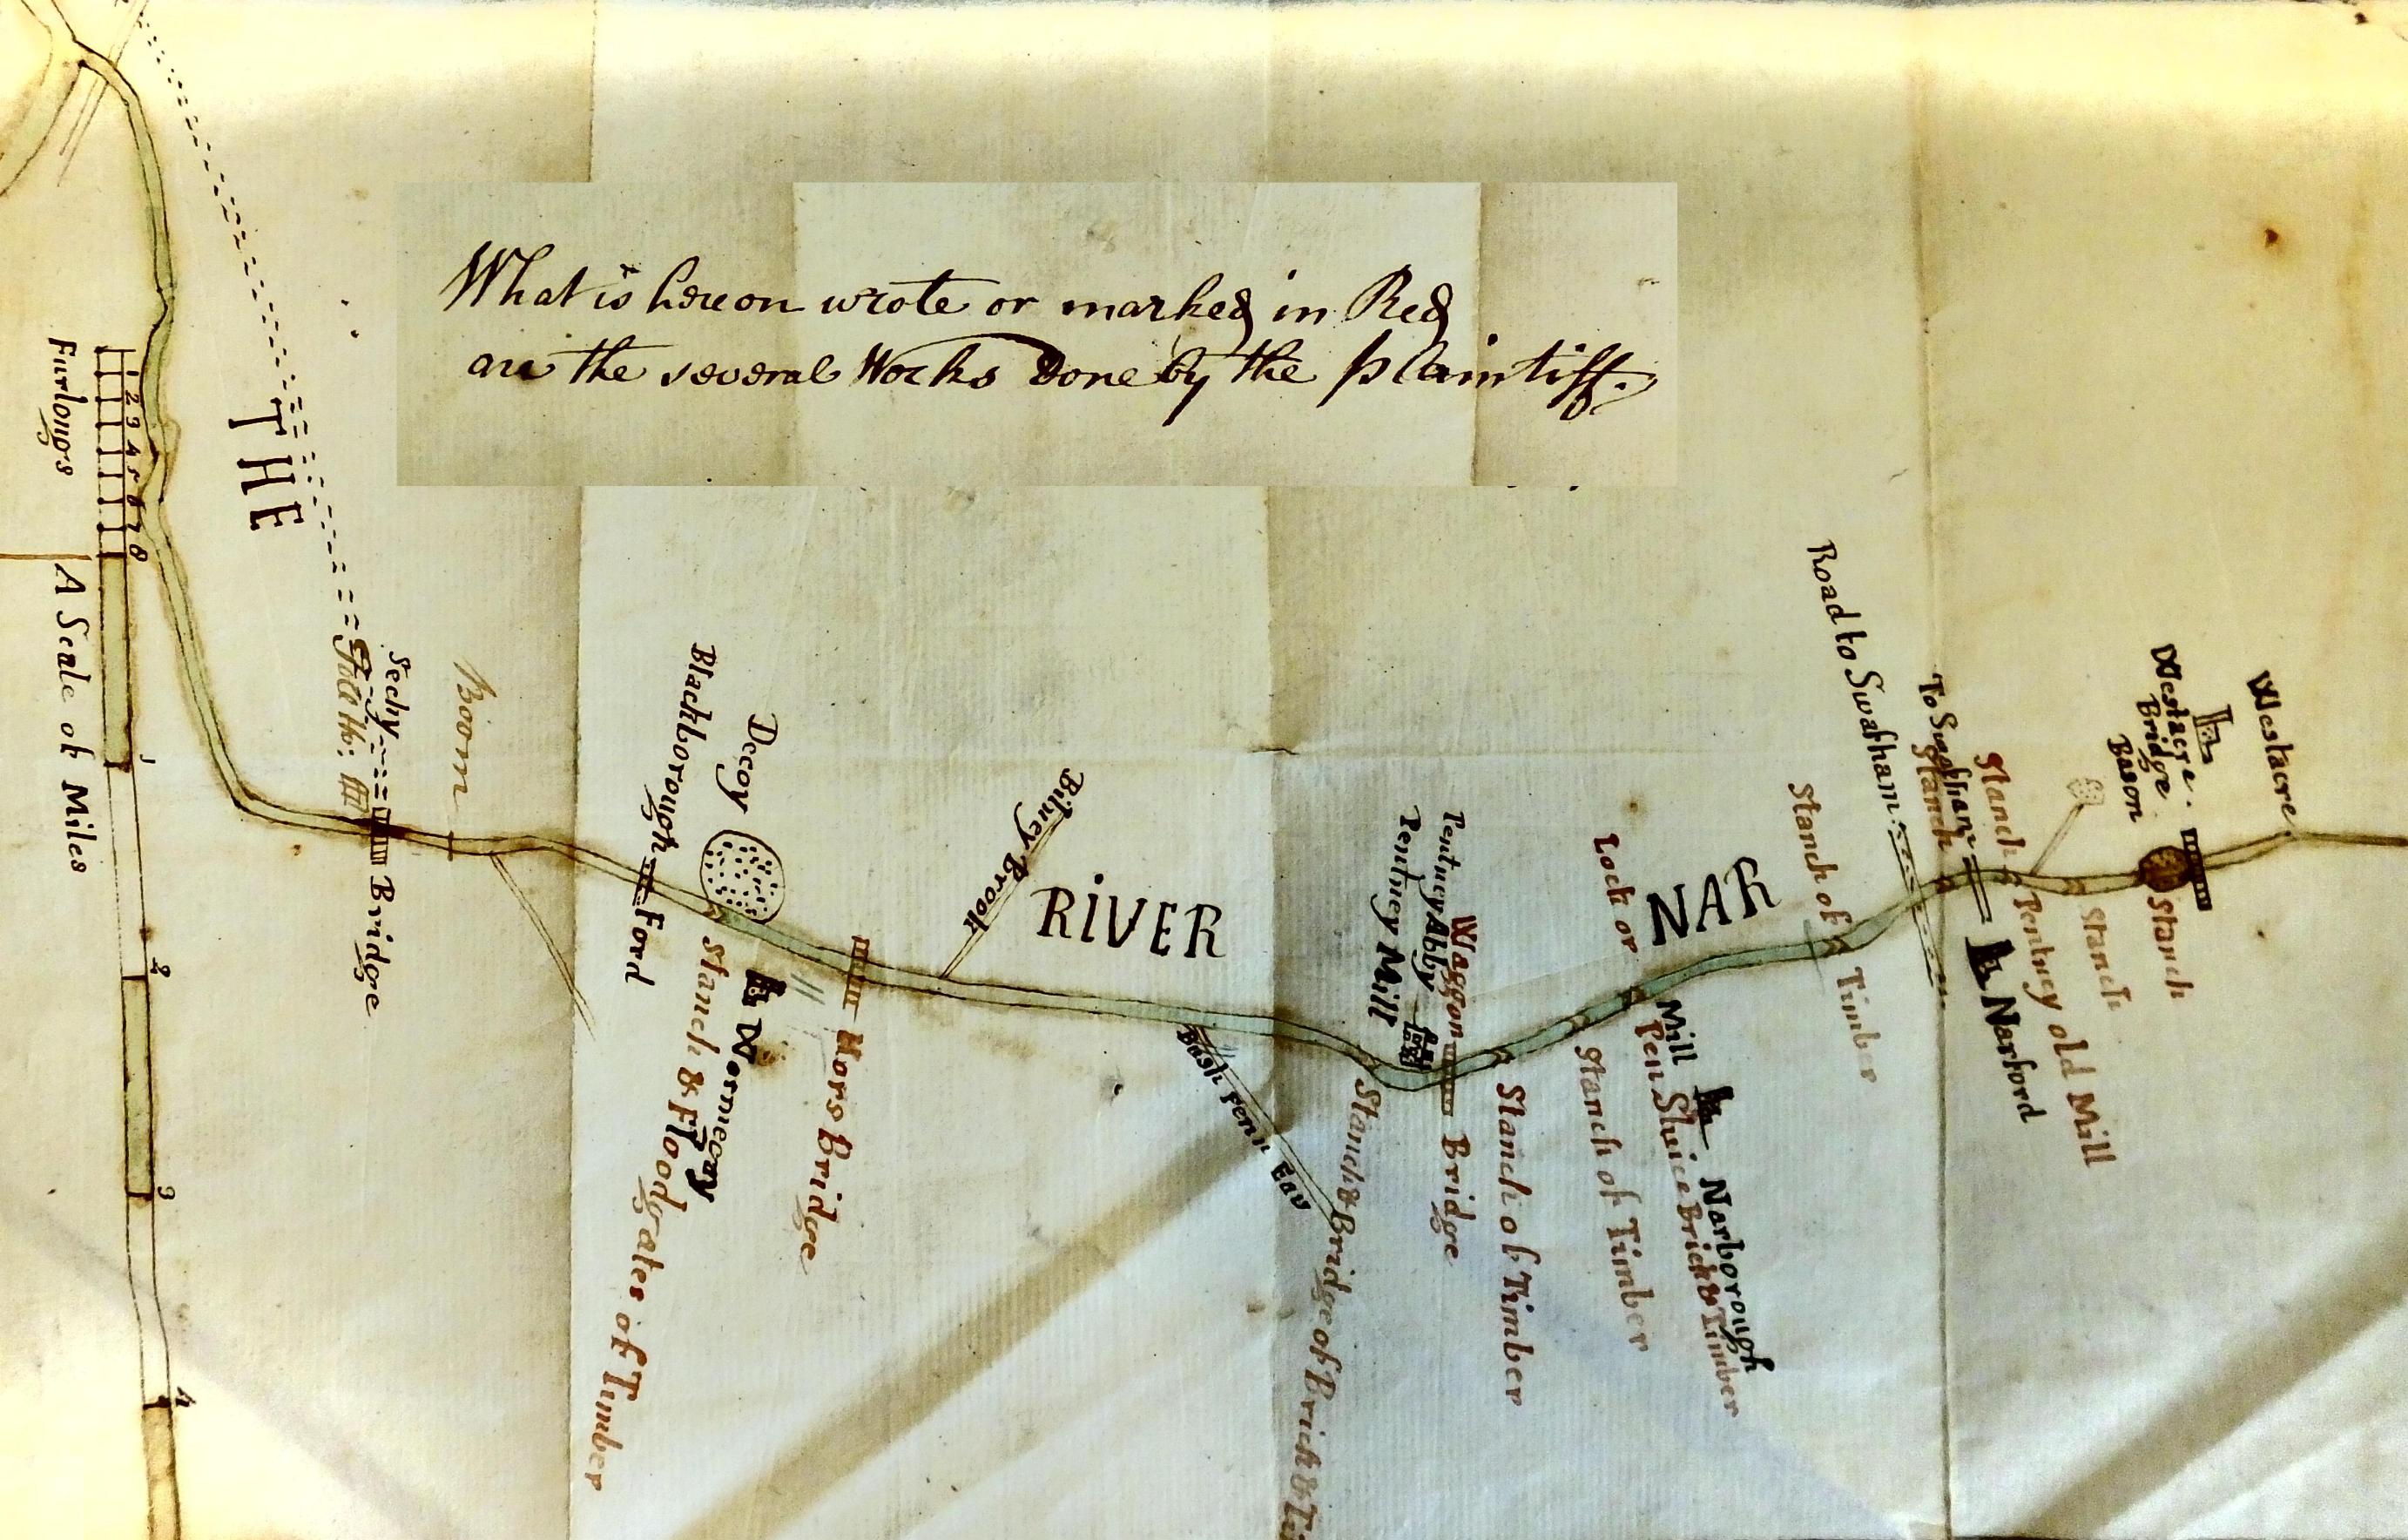 What is hereon wrote or marked in Red
are the several Works Done by the plaintiff.
THE
RIVER
NAR
Furlongs
1 2 3 4 5 6 7 8
A Scale of Miles
1
2
3
4
Sechy
Bridge
Boom
Blackborough
Ford
Decoy
Stanch & Floodgates of Timber
Wormegay
Hors Bridge
Bilney Brook
Bash Fenn Eau
Stanch & Bridge of Brick &
Pentney Mill
Pentney Abby
Waggon
Bridge
Stanch of Timber
Stanch of Timber
Lock or
Pen Sluice Brick & Timber
Mill
Narborough
Stanch of
Timber
Road to Swafham
To Swafham
Stanch
Narford
Stanch
Pentney old Mill
Stanch
Westacre
Bridge
Bason
Stanch
Westacre